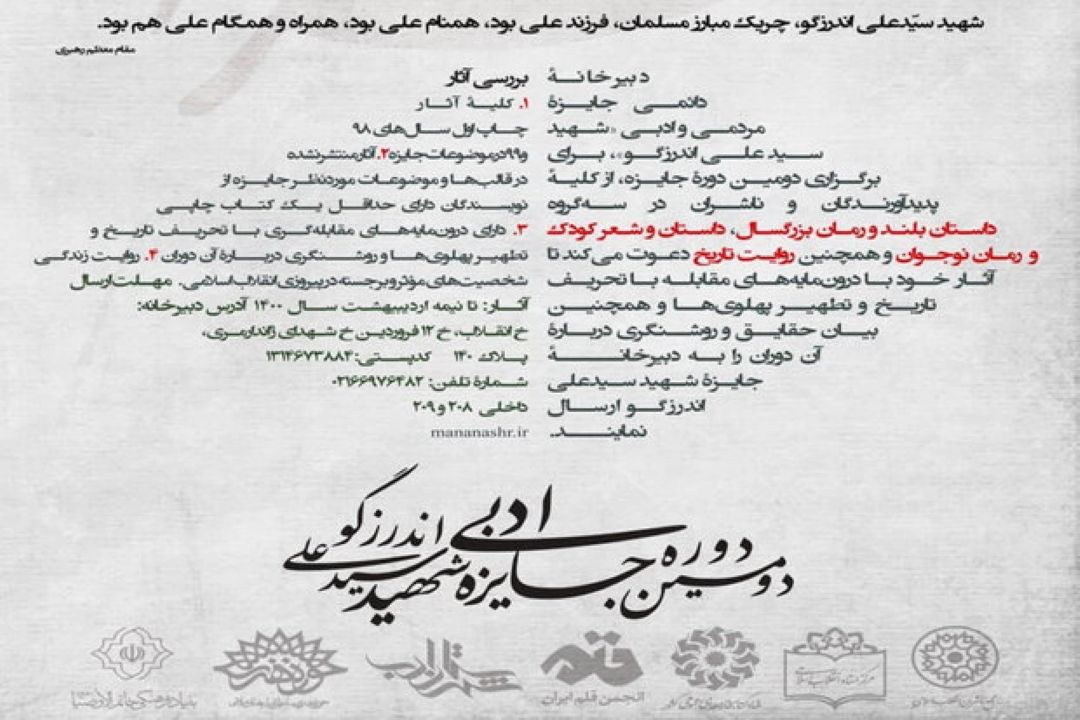 شهید سیّدعلی اندرزگو، چریک مبارز مسلمان، فرزند علی بود، همنام علی بود، همراه و همگام علی هم بود.
مقام معظم رهبری
دبیرخانهٔ
دائمی جایزهٔ
مردمی و ادبی «شهید
سید علی اندرزگو»، برای
برگزاری دومین دورهٔ جایزه، از کلیهٔ
پدیدآورندگان و ناشران در سه‌گروه
داستان بلند و رمان بزرگسال، داستان و شعر کودک
و رمان نوجوان و همچنین روایت تاریخ دعوت می‌کند تا
آثار خود با درون‌مایه‌های مقابله با تحریف
تاریخ و تطهیر پهلوی‌ها و همچنین
بیان حقایق و روشنگری دربارهٔ
آن دوران را به دبیرخانهٔ
جایزهٔ شهید سیدعلی
اندرزگو ارسال
نمایند.
بررسی آثار
۱. کلیهٔ آثار
چاپ اول سال‌های ۹۸
و۹۹ در موضوعات جایزه ۲. آثار منتشر نشده
در قالب‌ها و موضوعات مورد نظر جایزه از
نویسندگان دارای حداقل یک کتاب چاپی
۳. دارای درون‌مایه‌های مقابله‌گری با تحریف تاریخ و
تطهیر پهلوی‌ها و روشنگری دربارهٔ آن دوران ۴. روایت زندگی
شخصیت‌های مؤثر و برجسته در پیروزی انقلاب اسلامی. مهلت ارسال
آثار: تا نیمه اردیبهشت سال ۱۴۰۰ آدرس دبیرخانه:
خ انقلاب، خ ۱۲ فروردین خ شهدای ژاندارمری،
پلاک ۱۴۰ کدپستی: ۱۳۱۴۶۷۳۸۸۴
شمارهٔ تلفن: ۰۲۱۶۶۹۷۶۴۸۲
داخلی ۲۰۸ و ۲۰۹
mananashr.ir
دومین دوره جایزه ادبی شهید سید علی اندرزگو
انجمن قلم ایران
شهرستان ادب